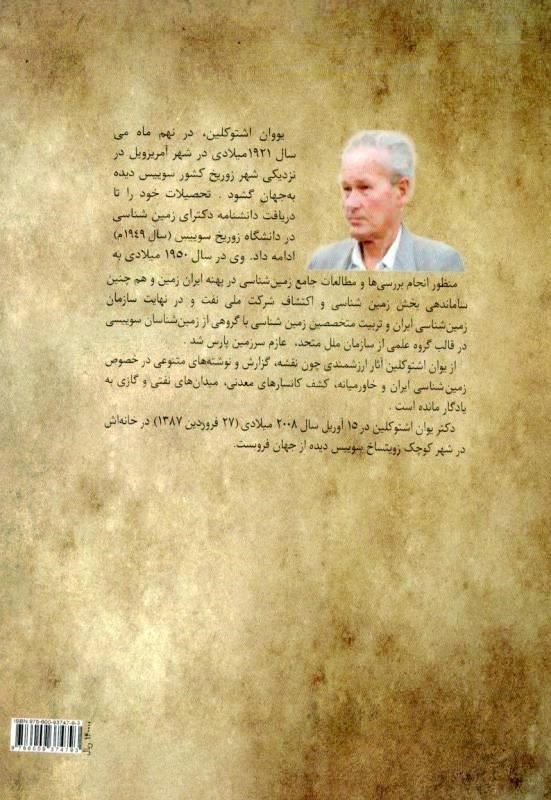 یووان اشتوکلین، در نهم ماه می
سال ۱۹۲۱میلادی در شهر آمریزویل در
نزدیکی شهر زوریخ کشور سوییس دیده
به‌جهان گشود . تحصیلات خود را تا
دریافت دانشنامه دکترای زمین شناسی
در دانشگاه زوریخ سوییس (سال ۱۹۴۹م)
ادامه داد. وی در سال ۱۹۵۰ میلادی به
منظور انجام بررسی‌ها و مطالعات جامع زمین‌شناسی در پهنه ایران زمین و هم چنین
ساماندهی بخش زمین شناسی و اکتشاف شرکت ملی نفت و در نهایت سازمان
زمین‌شناسی ایران و تربیت متخصصین زمین شناسی با گروهی از زمین‌شناسان سوییسی
در قالب گروه علمی از سازمان ملل متحد، عازم سرزمین پارس شد .
از یوان اشتوکلین آثار ارزشمندی چون نقشه، گزارش و نوشته‌های متنوعی در خصوص
زمین‌شناسی ایران و خاورمیانه، کشف کانسارهای معدنی، میدان‌های نفتی و گازی به
یادگار مانده است .
دکتر یوان اشتوکلین در ۱۵ آوریل سال ۲۰۰۸ میلادی (۲۷ فروردین ۱۳۸۷) در خانه‌اش
در شهر کوچک زویتساخ سوییس دیده از جهان فروبست.
ISBN 978-600-93747-9-3
9786009374793
۱۴۰۰۰۰ ریال